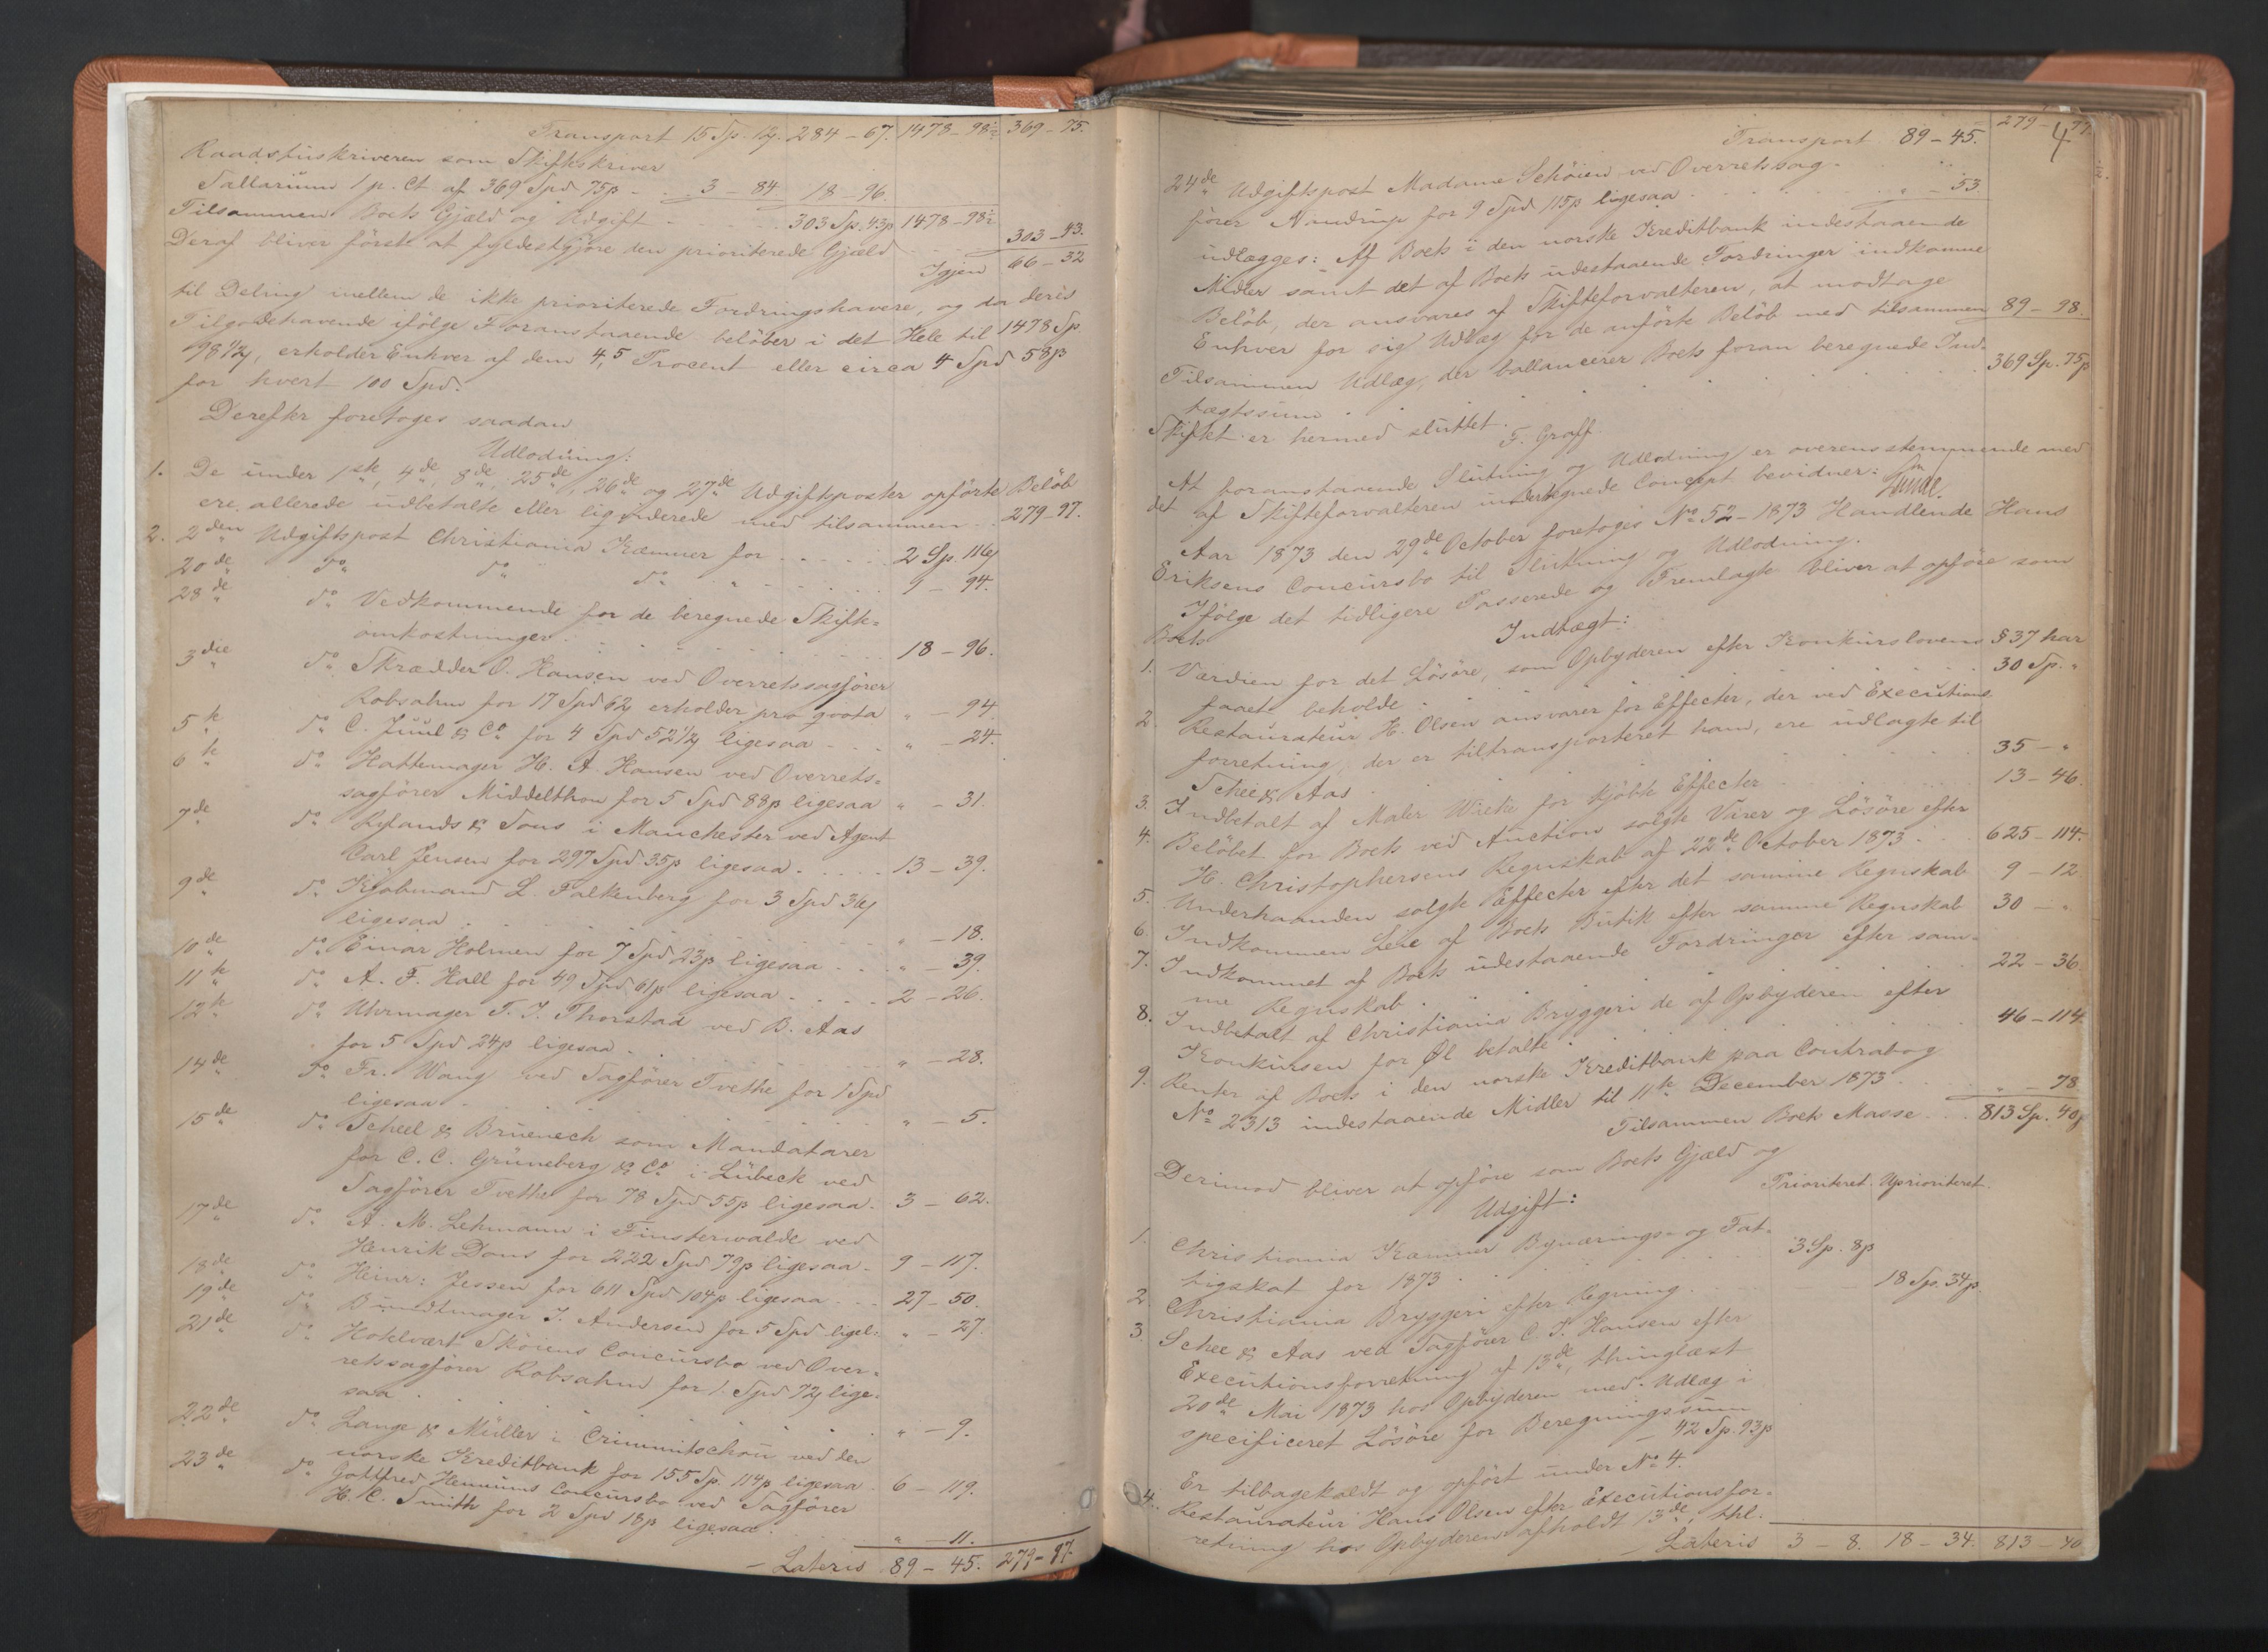 Transport 15 Sp. 12ß. 284 – 67. 1478 – 98½ 369 – 75.
Raadstuskriveren som Skifteskriver
Sallarium 1 p. Ct. af 369 Spd 75ß - - 3 – 84 18 – 96.
Tilsammen Boets Gjæld og Udgift - - - - 303 Sp. 43ß 1478 – 98½
Deraf bliver först at fyldestgjöre den prioriterede Gjæld 303 – 43.
Igjen 66 – 32
til Deling mellem de ikke prioriterede Fordringshavere, og da deres
Tilgodehavende ifölge Foranstaaende belöber i det Hele til 1478 Sp.
98½ß, erholder Enhver af dem 4,5 Procent eller circa 4 Spd 58ß
for hvert 100 Spd.
Derefter foretoges saadan
Udlodning:
1. De under 1ste, 4de, 8de, 25de, 26de og 27de Udgiftsposter opförte Beløb
ere allerede udbetalte eller liqviderede med tilsammen - - 279 – 97.
2. 2den Udgiftspost Christiania Kæmner for - - - - - 2 Sp. 116ß
20de do do do " - - - - - 1 – 94.
28de do Vedkommende for de beregnede Skifte=
omkostninger - - - - - 18 – 96.
3die do Skrædder O. Hansen ved Overretssagförer
Robsahm for 17 Spd 62ß erholder pro qvota " – 94.
5te do C. Juul & Co for 4 Spd 52½ß ligesaa - - - " – 24.
6te do Hattemager H. A. Hansen ved Overrets=
sagförer Middelthon for 5 Spd 88ß ligesaa " – 31.
7de do Rylands & Sons i Manchester ved Agent
Carl Jensen for 297 Spd 35ß ligesaa - - - - - 13 – 39.
9de do Kjöbmand L. Falkenberg for 3 Spd 36ß
ligesaa - - - - - " – 18.
10de do Einar Holmen for 7 Spd 23ß ligesaa - - - " – 39.
11te do A. F. Hall for 49 Spd 61ß ligesaa - - - - 2 – 26.
12te do Uhrmager T. J. Thorstad ved B. Aas
for 5 Spd 24ß ligesaa - - - - " – 28.
14de do Fr. Wang ved Sagförer Tvethe for 1 Spd
ligesaa - - - - " – 5.
15de do Scheel & Bruenech som Mandatarer
for C. C. Grüneberg & Co i Lübeck ved
Sagförer Tvethe for 78 Spd 55ß ligesaa - 3 – 62.
17de do A. M. Lehmann i Finsterwalde ved
Henrik Dons for 222 Spd 79ß ligesaa - 9 – 117.
18de do Heinr: Jessen for 611 Spd 104ß ligesaa - - - 27 – 50.
19de do Bundtmager J. Andersen for 5 Spd ligel: " – 27.
21de do Hotelvært Sköiens Concursbo ved Over=
retssagförer Robsahm for 1 Spd 72ß lige=
saa - - - - " – 9.
22de do Lange & Müller i Crimmitschau ved den
norske Kreditbank for 155 Sp. 114ß ligesaa - 6 – 119.
23de do Gottfred Hennums Concursbo ved Sagförer
H. C. Smith for 2 Spd 18ß ligesaa - - " – 11.
– Lateris 89 – 45. 279 – 97.
4
Transport 89 – 45. 279 – 97.
24de Udgiftspost Madame Schöien ved Overretssag-
förer Nandrup for 9 Spd 115ß ligesaa - - - - " – 53
udlægges: Af Boets i den norske Kreditbank indestaaende
Midler samt det af Boets udestaaende Fordringer indkomne
Belöb, der ansvares af Skifteforvalteren, at modtage
Enhver for sig Udlæg for de anförte Belöb med tilsammen 89 – 98.
Tilsammen Udlæg, der ballancerer Boets foran beregnede Ind-
tægtssum - - - - 369 Sp. 75ß
Skiftet er hermed sluttet.
F. Graff
At foranstaaende Slutning og Udlodning er overensstemmende med
det af Skifteforvalteren undertegnede Concept bevidner:
Lunde.
Aar 1873 den 29de October foretoges No 52 – 1873 Handlende Hans
Eriksens Concursbo til Slutning og Udlodning.
Ifölge det tidligere Passerede og Fremlagte bliver at opföre som
Boets Indtægt:
1. Værdien for det Lösöre, som Opbyderen efter Konkurslovens § 37 har
faaet beholde - - - - 30 Sp. "
2. Restaurateur H. Olsen ansvarer for Effecter, der ved Executions-
forretning, der er tiltransporteret ham, ere udlagte til
Schee & Aas - - - - 35 – "
3. Indbetalt af Maler Wiche for kjöbte Effecter - - - 13 – 46.
4. Belöbet for Boets ved Auction solgte Varer og Lösöre efter
H. Christophersens Regnskab af 22de October 1873 - - 625 – 114.
5. Underhaanden solgte Effecter efter det samme Regnskab 9 – 12.
6. Indkommen Leie af Boets Butik efter samme Regnskab 30 – "
7. Indkommet af Boets udestaaende Fordringer efter sam-
me Regnskab - - - - 22 – 36.
8. Indbetalt af Christiania Bryggeri de af Opbyderen efter
Konkursen for Øl betalte - - - - 46 – 114.
9. Renter af Boets i den norske Kreditbank paa Contrabog
No 2313 indestaaende Midler til 11te December 1873 - - " – 78
Tilsammen Boets Masse - - 813 Sp. 40ß
Derimod bliver at opföre som Boets Gjæld og
Udgift: Prioriteret. Uprioriteret.
1. Christiania Kæmner Bynærings- og Fat-
tigskat for 1873 - - - - 3 Sp. 8ß
2. Christiania Bryggeri efter Regning - - - 18 Sp. 34ß.
3. Schee & Aas ved Sagförer C. J. Hansen efter
Executionsforretning af 13de, thinglæst
20de Mai 1873 hos Opbyderen med Udlæg i
specificeret Lösöre for Beregningssum
– 42 Sp. 93ß
Er tilbagekaldt og opfört under No 4.
4. Restaurateur Hans Olsen efter Executionsfor-
retning hos Opbyderen afholdt 13de, thl.
– Lateris 3 – 8. 18 – 34. 813 – 40